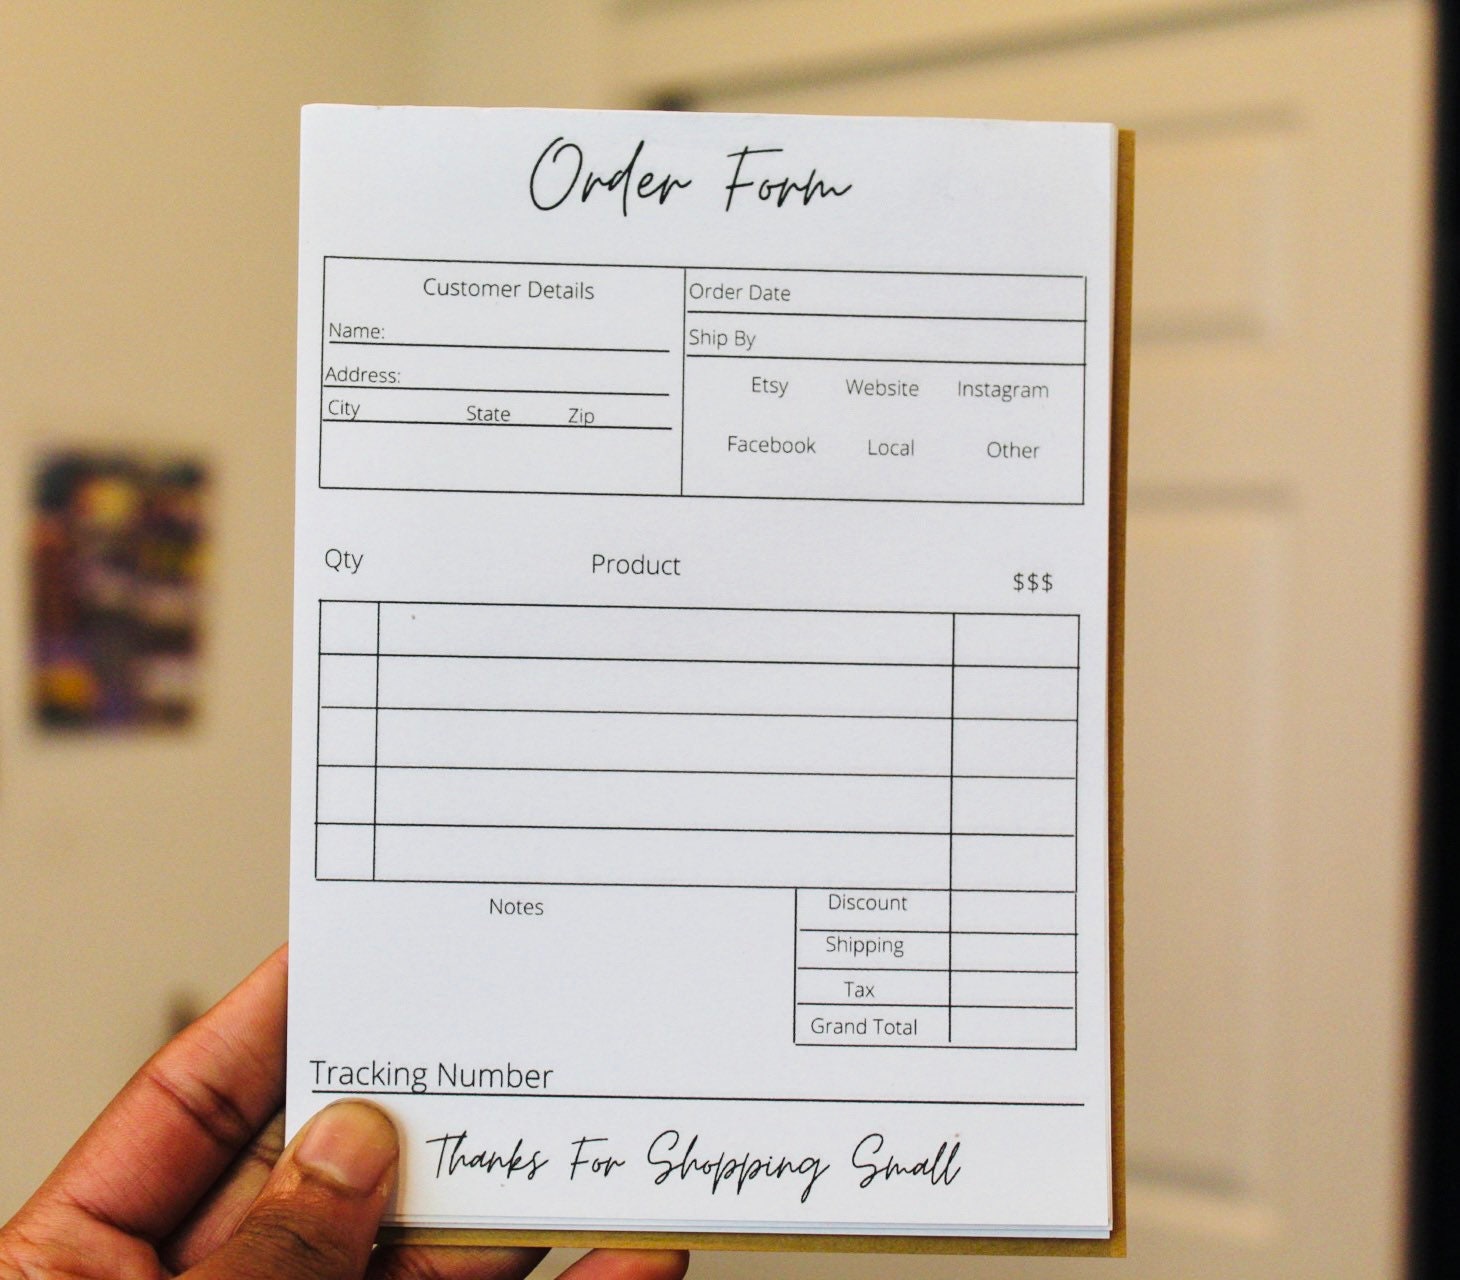 Order Form
Customer Details
Name:
Address:
City State Zip
Order Date
Ship By
Etsy Website Instagram
Facebook Local Other
Qty Product $$$
Notes
Discount
Shipping
Tax
Grand Total
Tracking Number
Thanks For Shopping Small